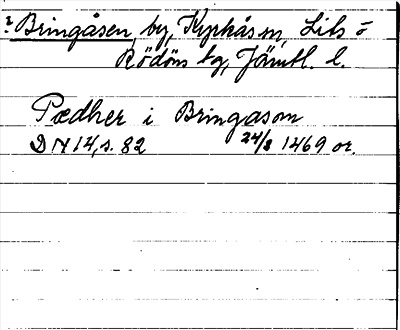 ? Bringåsen, by, Kyrkås sn, Lits o
Rödöns tg, Jämtl. l.
Pædher i Bringasom
DN 14, s. 82 24/8 1469 or.